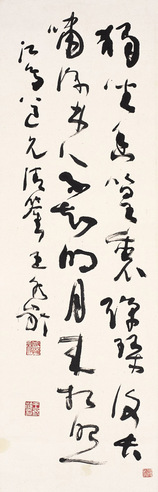 獨坐幽篁裏彈琴復長
嘯深林人不知明月來相照
道兄清鑒 王